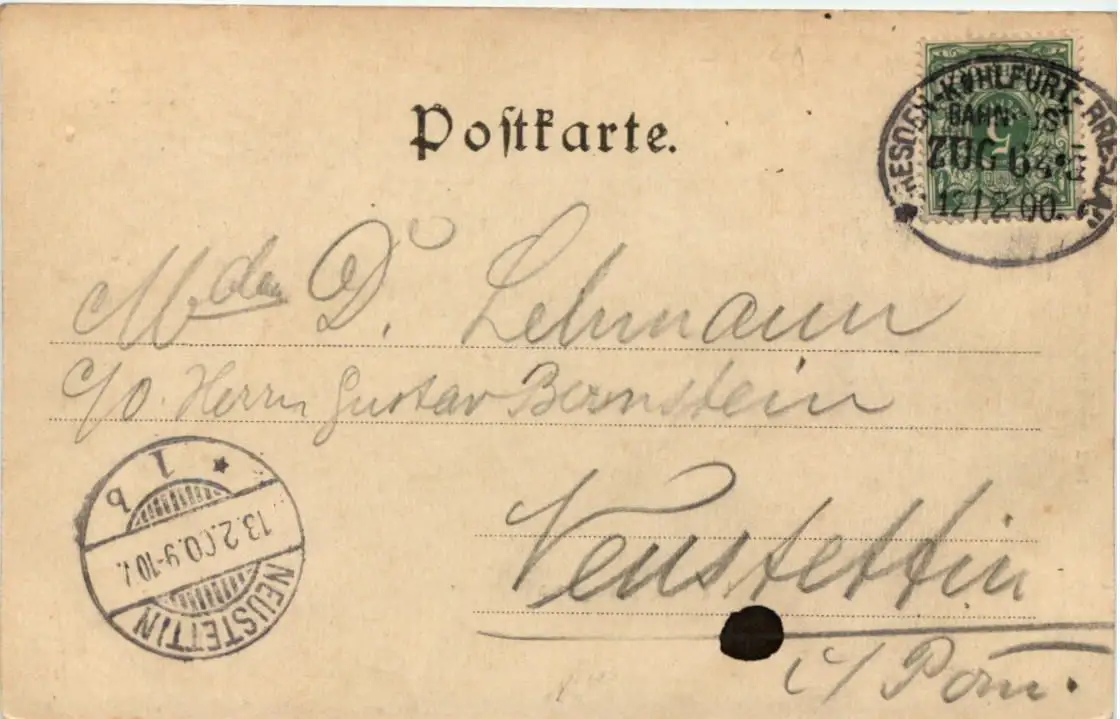 Postkarte.
DRESDEN-KOHLFURT-BRESLAU
BAHNPOST
ZUG 64
12/2 00.
5
Mdam D. Lehmann
c/o. Herrn Gustav Bernstein
Neustettin
i/ Pom.
NEUSTETTIN
13.2.00.9-10V.
1 b